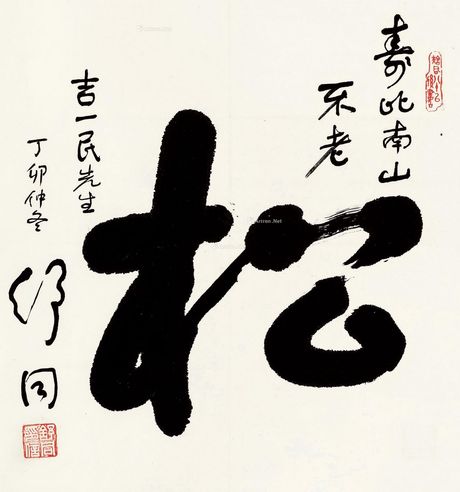 寿比南山
不老
松
吉一民先生
丁卯仲冬
舒同
Artron.Net